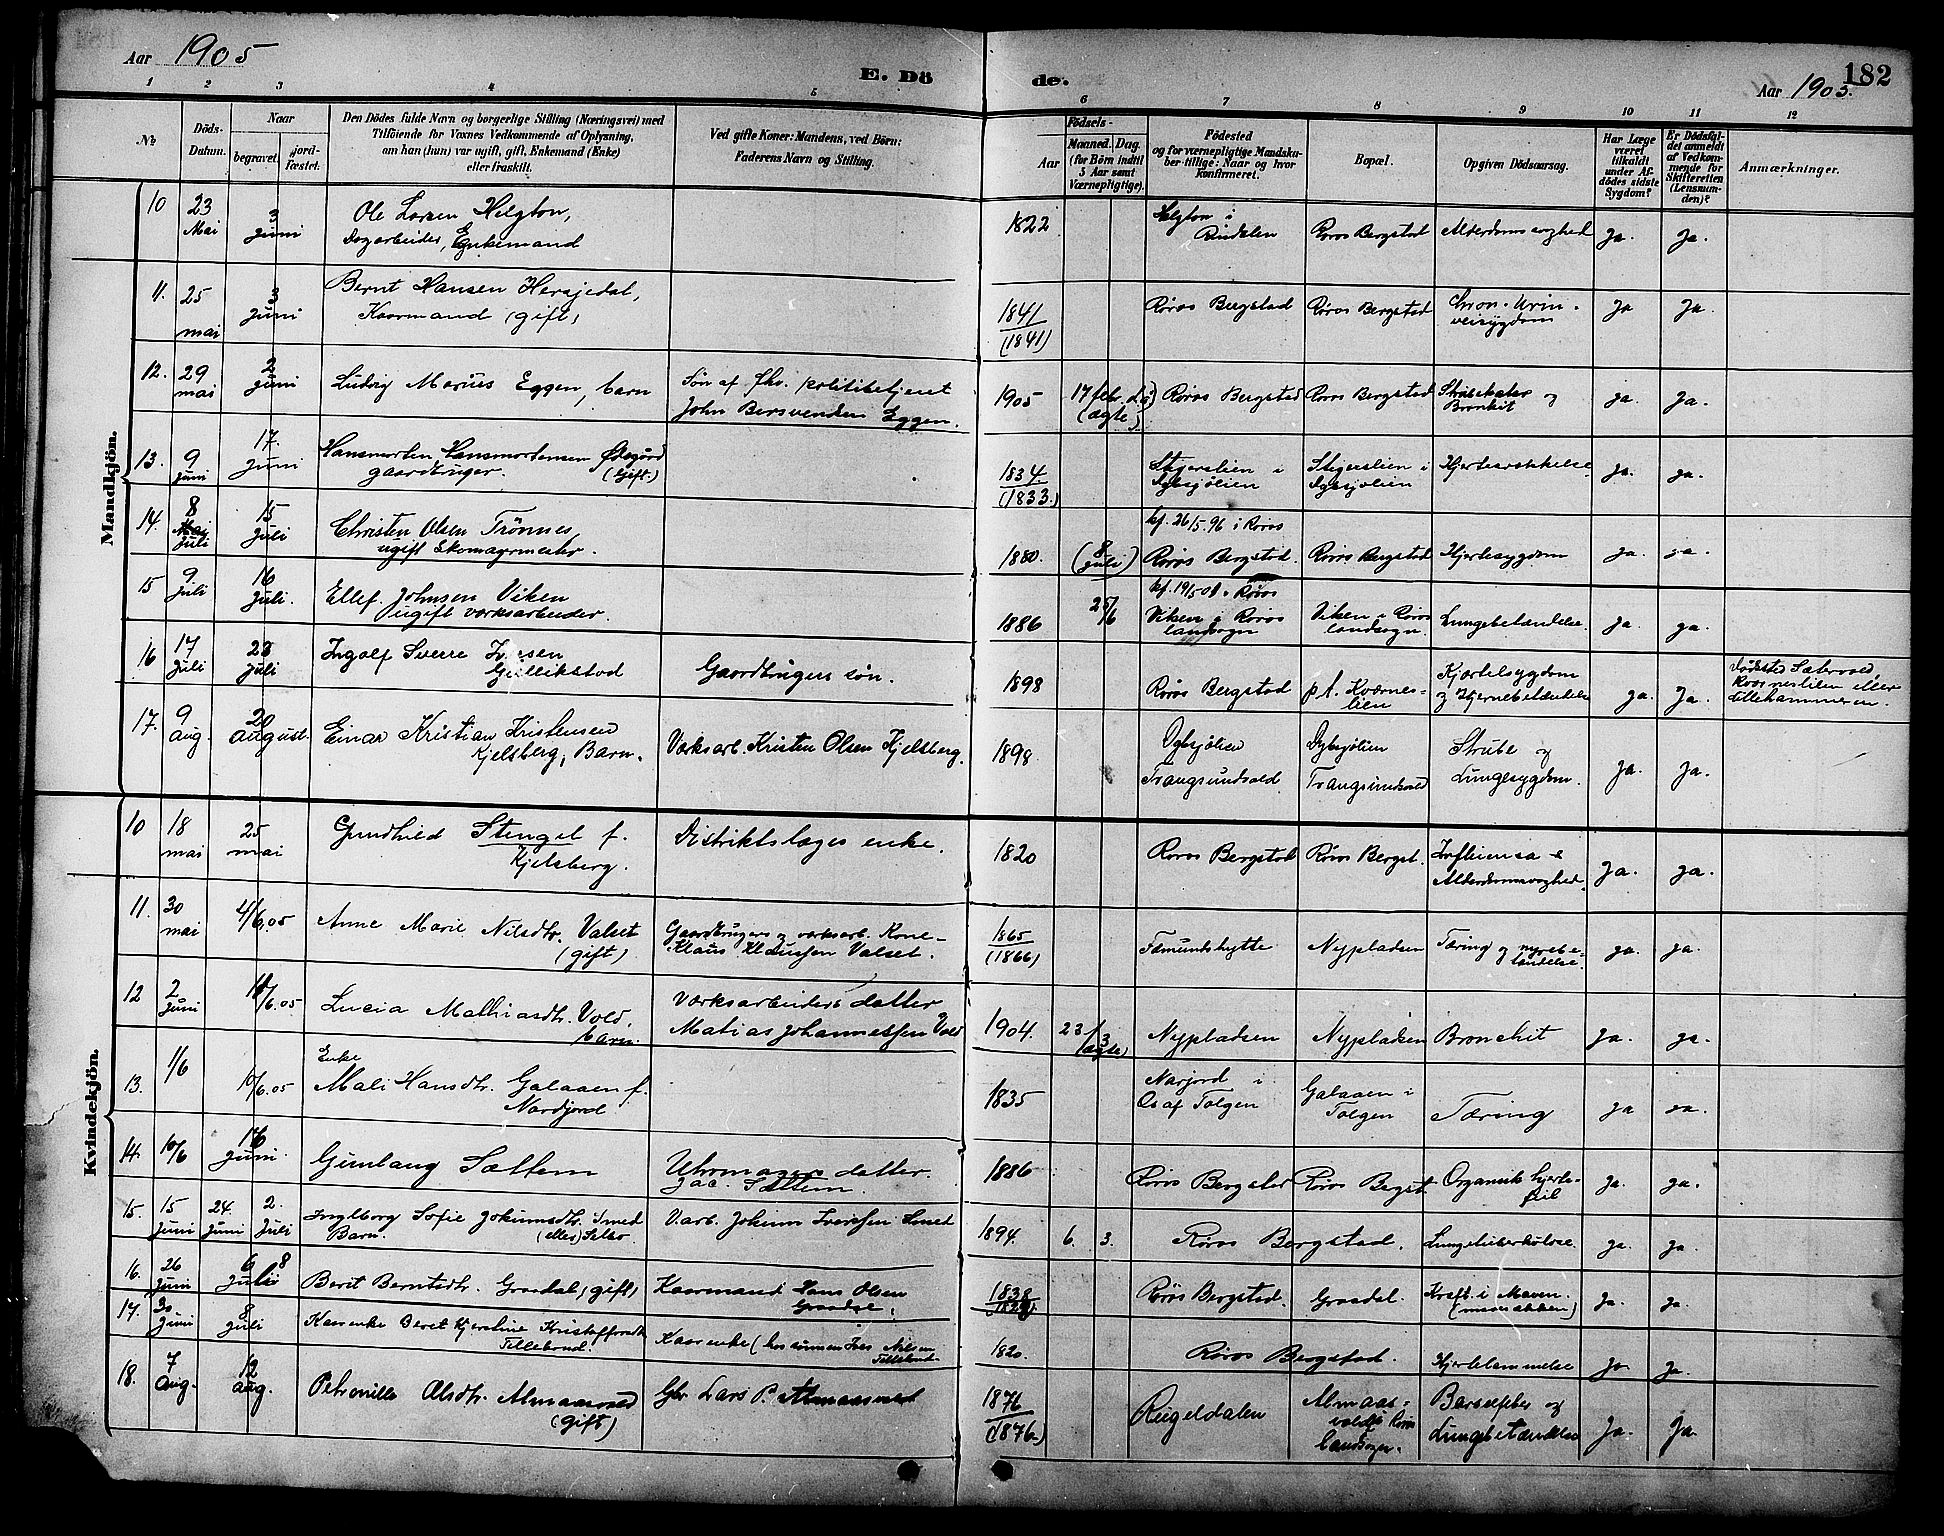 Aar 1905
E. Dö de.
182
Aar 1905.
1 2 3 4 5 6 7 8 9 10 11 12
No
Döds-
Datum.
Naar
begravet. jord-
fæstet.
Den Dödes fulde Navn og borgerlige Stilling (Næringsvei) med
Tilföiende for Voxnes Vedkommende af Oplysning,
om han (hun) var ugift, gift, Enkemand (Enke)
eller fraskilt.
Ved gifte Koner: Mandens, ved Börn:
Faderens Navn og Stilling.
Födsels-
Aar
Maaned. Dag.
(for Börn indtil
5 Aar samt
Værnepligtige).
Födested
og for værnepligtige Mandska-
ber tillige: Naar og hvor
konfirmeret.
Bopæl.
Opgiven Dödsaarsag.
Har Læge
været
tilkaldt
under Af-
dödes sidste
Sygdom?
Er Dödsfal-
det anmeldt
af Vedkom-
mende for
Skifteretten
(Lensman-
den)?
Anmærkninger.
Mandkjön.
10 23 Mai 3 Juni
Ole Larsen Helgton,
Dagarbeider, Enkemand
1822 Helgton i Rindalen Røros Bergstad Alderdomssvaghed Ja. Ja.
11. 25 mai 3 Juni
Bernt Hansen Hersjedal,
Kaarmand (gift)
1841 (1841) Røros Bergstad Røros Bergstad Chron. Urin-
veisygdom Ja Ja.
12. 29 mai 2 Juni
Ludvig Marius Eggen, barn
Søn af fhv. politibetjent
John Bersvendsen Eggen.
1905 17 febr. (ægte) Røros Bergstad Røros Bergstad og Bronkit ja. Ja.
13. 9 Juni 17. Juni
Hansmorten Hansmortensen Ødegård
gaardbruger. (Gift.)
1834. (1833.) Stigerslien i
Dybsjølien Stigerslien i
Dybsjolien Ja. ja.
14. 8 Juli 15 Juli
Christen Olsen Trønnes
ugift Skomagermester.
1880. (8 juli) kf. 26/5.96 i Røros
Røros Bergstad. Røros Bergstad Hjertesygdom ja. ja.
15 9 Juli 16 Juli.
Ellef Johnsen Viken
ugift værksarbeider.
1886 25/6 Viken i Røros
landsogn Viken i Røros
landsogn Lungebetændelse. ja ja.
16 17 Juli 23 Juli
Ingolf Sverre Iversen
Gullikstad
Gaardbrugers søn.
1898 Røros Bergstad p.t. Kværnes-
lien Kjertelsygdom
og Hjernebetændelse ja. Ja.
17. 9 aug. 20 August.
Einar Kristian Kristensen
Kjelsberg, Barn.
Værksarb. Kristen Olsen Kjelsberg.
1898. Dybsjølien
Trangsundvold Dybsjølien
Trangsundvold Strube og
Lungesygdom. Ja. Ja.
Kvindekjön.
10 18 mai 25 mai
Gunhild Stengel f.
Kjelsberg.
Distriktslæges enke.
1820 Røros Bergstad Røros Bergst. Influensa &
Alderdomssvaghed. Ja. ja.
11. 30 mai 4/6.05
Anne Marie Nilsdtr. Valset
(gift)
Gaardbrugers og værksarb. Kone-
Klaus Klaussen Valset.
1865 (1866) Fæmundshytte Nypladsen Tæring og nyrebe-
tændelse. ja. ja.
12 2 Juni 10/6.05
Lucia Mathiasdtr. Vold,
barn.
Værksarbeiders datter
Matias Johannessen Vold
1904. 23/3 (ægte) Nypladsen Nypladsen Bronchit Ja. ja.
13. 1/6 10/6.05
Enke
Mali Hansdtr. Galaaen f.
Nordjord
1835 Narjord i
Os af Tolgen Galaaen i
Tolgen Tæring ja ja.
14. 10/6 16 Juni.
Gunlaug Sættem
Uhrmager datter.
Jac. Sættem.
1886 Røros Bergstad Røros Bergst. Organisk hjerte-
feil Ja. ja.
15. 15 Juni 24. Juni 2. Juli
Ingeborg Sofie Johannsdtr. Smed
Barn. (eller) Selbo.
V.arb. Johann Iversen Smed
1894. 6. 3. Røros Bergstad. Lungetuberkulose. ja. Ja.
16. 26 Juni 6 8 Juli
Berit Berntsdtr. Graadal, gift,
Kaarmand Hans Olsen
Graadal.
1838 Røros Bergstad. Graadal. Kræft i Maven. Ja. ja.
17. 30 Juni 8 juli
Kaarenke Beret Kjerstine Kristoffersdtr.
Kaarenke (hos sønnen Iver Nilsen
1820. Røros Bergstad. Hjertelammelse Ja. Ja.
18. 7 Aug. 12 aug.
Petronille Olsdtr. Almaasvold
(Gift)
Gbr. Lars P. Almaasvold
1876 (1876) Rugeldalen Almaas-
vold i Røros
landsogn. Barselfeber og
Lungebetændelse Ja. Ja.